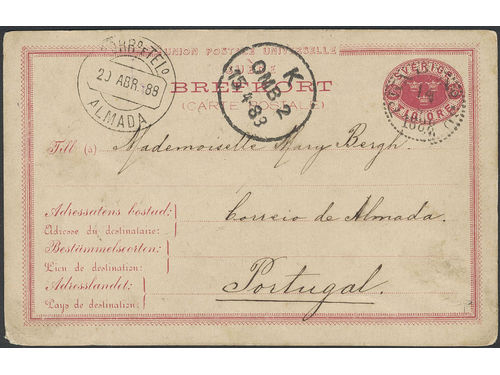 UNION POSTALE UNIVERSELLE
BREFKORT
(CARTE POSTALE)
20 ABR. 88
ALMADA
K
OMB 2
15 4 83
SVERIGE
10 ÖRE
Till (à) Mademoiselle Mary Bergh.
Adressatens bostad:
Adresse du destinataire:
Correio de Almada.
Bestämmelseorten:
Lieu de destination:
Adresslandet:
Pays de destination:
Portugal.